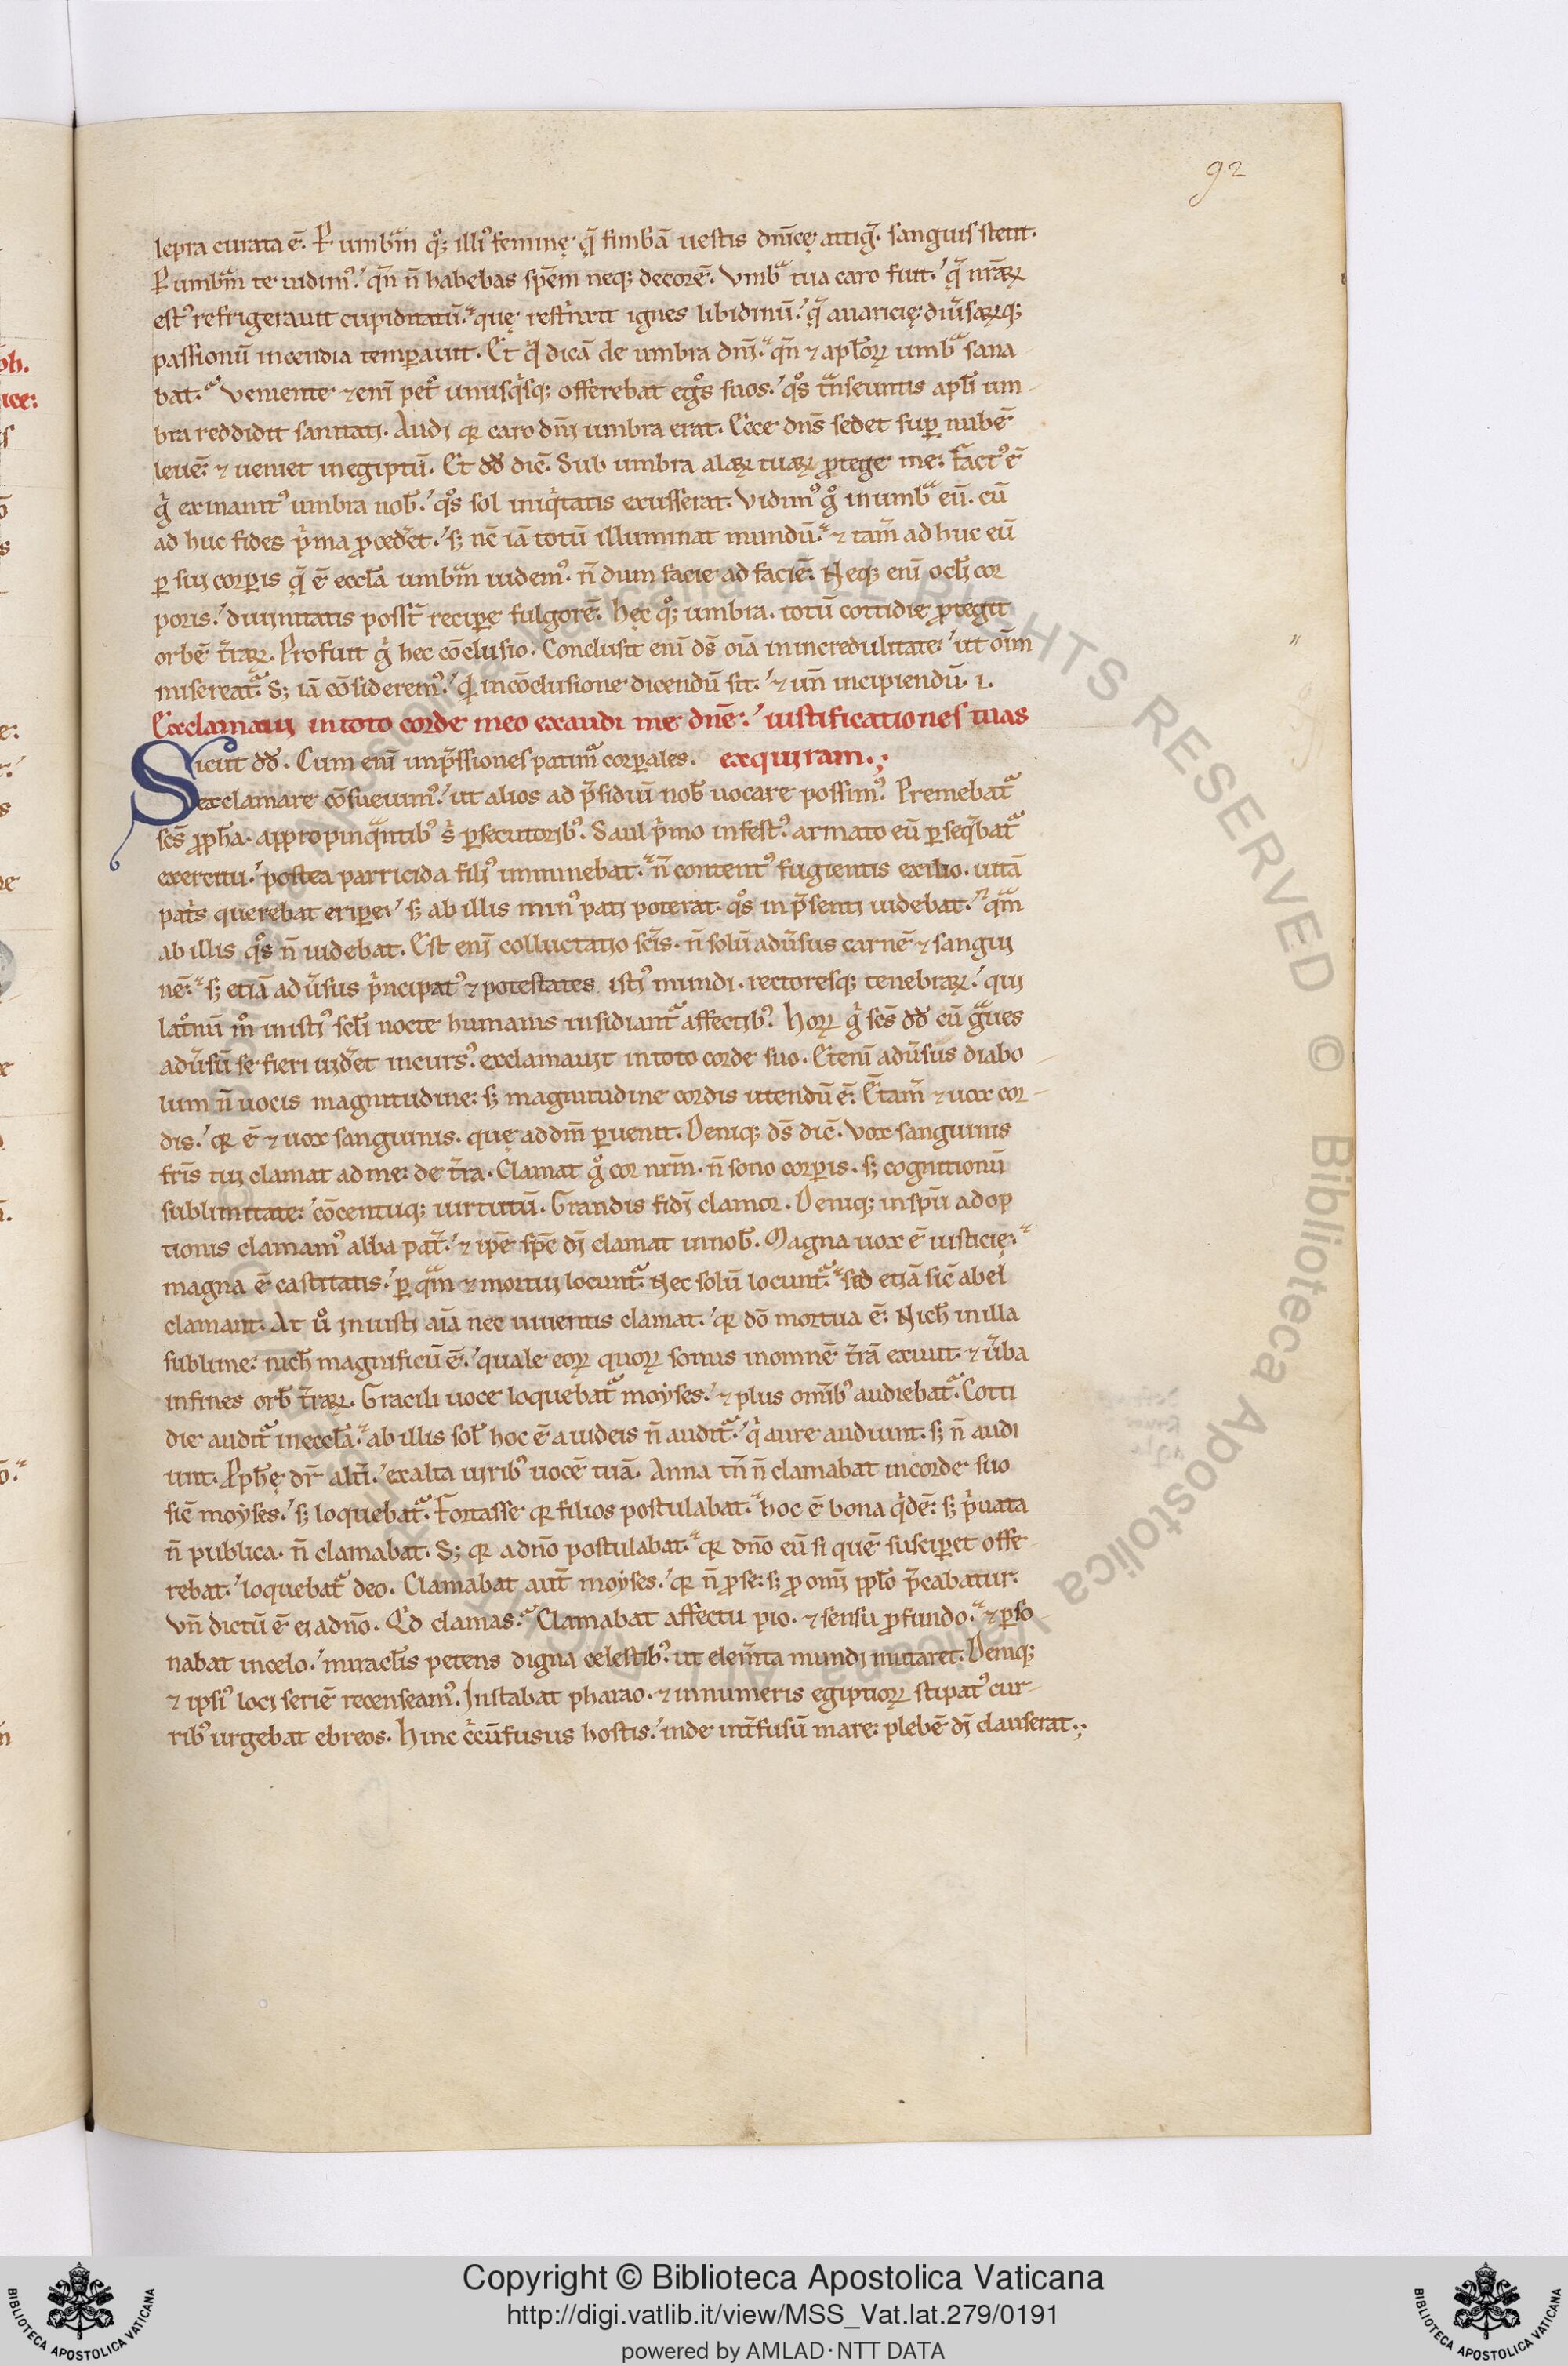 92
lepra curata ē. Ꝑ umbrā qͦꝫ illiꝰ feminę q̄ fimbā uestis dn̄icę attig̃. sanguis stetit.
Ꝑ umbrā te uidimꝰ. qn̄ n̄ habebas spēm neqꝫ decorē. Vmbͣ tua caro fuit. q̄ nr̄aꝝ
estꝰ refrigerauit cupiditatū. quę restrīxit ignes libidinū. q̄ auaricię. diu̾saꝝqꝫ
passionū incendia temꝑauit. Et qͥd dicā de umbra dn̄i. qn̄ ⁊ apl̄oꝝ umbͣ sana
bat. Veniente ⁊enī pet̾ unusqͥsqꝫ offerebat egͦs suos. qͦs tͣnseuntis apl̄i um-
bra reddidit sanitati. Audi qꝛ caro dn̄i umbra erat. Ecce dn̄s sedet suꝑ nubē
leuē. ⁊ ueniet inegiptū. Et dd̄ dic̄. Sub umbra alaꝝ tuaꝝ ꝓtege me. factꝰ ē
gͥ exinanitꝰ umbra nob̄. qͦs sol iniqͥtatis exusserat. Vidimꝰ gͦ inumbͣ eū. cū
ad huc fides pͥma ꝓced̾et. sꝫ nc̄ iā totū illuminat mundū. ⁊ tam̄ ad huc eū
ꝑ sui corꝑis q̄ ē eccl̄a umbrā uidemꝰ. n̄ dum facie ad faciē. Neqꝫ enī ocl̄i cor
poris. diuinitatis posst̄ reciꝑe fulgorē. Hęc qͦꝫ umbra. totū cottidie ꝓtegit
orbē t̄raꝝ. Profuit gͥ hec cōclusio. Conclusit enī ds̄ oīa in incredulitate. ut oīm
misereatͣ. Sꝫ iā cōsideremꝰ. qͥd inconclusione dicendū sit. ⁊ un̄ incipiendū. ı.
Exclamaui intoto corde meo exaudi me dn̄e. iustificationes tuas
Sicut dd̄. Cum enī imp̄ssiones patimͣ corꝑales. exquiram.
exclamare cōsueuimꝰ. ut alios ad p̄sidiū nob̄ uocare possimꝰ. Premebatͣ
sc̄s ꝓph̄a. appropinqͣntibꝰ sͥ ꝑsecutoribꝰ. Saul pͥmo infestꝰ. armato eū ꝑseq̄batͣ
exercitu. postea parricida filiꝰ imminebat. n̄ contentꝰ fugientis exilio. uitā
patͥs querebat eriꝑe. sꝫ ab illis minꝰ pati poterat. qͦs inp̄senti uidebat. qͣm
ab illis qͦs n̄ uidebat. Est enī colluctatio sc̄is. n̄ solū adu̾sus carnē ⁊ sangui
nē. sꝫ etiā adu̾sus pͥncipatꝰ ⁊ potestates istiꝰ mundi. rectoresqꝫ tenebraꝝ. qui
latͦnū mͦ inistiꝰ scl̄i nocte humanis insidiantͣ affectibꝰ. Hoꝝ gͥ sc̄s dd̄ cū gͣues
adu̾sū se fieri uid̾et incursꝰ. exclamauit intoto corde suo. Etenī adu̾sus diabo-
lum n̄ uocis magnitudine. sꝫ magnitudine cordis utendū ē. Et̄am̄ ⁊ uox cor-
dis. qꝛ ē ⁊ uox sanguinis. quę addm̄ ꝑuenit. Deniqꝫ ds̄ dic̄. Vox sanguinis
fr̄is tui clamat adme. de t̄ra. Clamat gͦ cor nrm̄. n̄ sono corꝑis. sꝫ cognitionū
sublimitate. cōcentuqꝫ uirtutū. Grandis fidi clamor. Deniqꝫ inspū adop
tionis clamamꝰ abba pat̾. ⁊ ip̄e sp̄c di clamat innob̄. Magna uox ē iusticię.
magna ē castitatis. ꝑ qͣm ⁊ mortui locuntͣ. Nec solū locuntͣ. sed etiā sic̄ abel
clamant. At uͦ iniusti aīa nec uiuentis clamat. qꝛ dō mortua ē. Nich̄ inilla
sublime. nich̄ magnificū ē. quale eoꝝ quoꝝ sonus inomnē t̄rā exiuit. ⁊ u̾ba
infines orb̄ t̄raꝝ. Gracili uoce loquebatͣ moyses. ⁊ plus omībꝰ audiebatͣ. Cotti
die auditͣ ineccl̄a. ab illis sol̄ hoc ē a iudeis n̄ auditͣ. qͥ aure audiunt. sꝫ n̄ audi
unt. Ꝓph̄ę dr̄ alt̾i. exalta uiribꝰ uocē tuā. Anna tn̄ n̄ clamabat incorde suo
sic̄ moyses. sꝫ loquebatͣ. Fortasse qꝛ filios postulabat. hoc ē bona qͥdē. sꝫ pͥuata
n̄ publica. n̄ clamabat. Sꝫ qꝛ adn̄o postulabat. qꝛ dn̄o eū si quē susciꝑet offe-
rebat. loquebatͣ deo. Clamabat aut̄ moyses. qꝛ n̄ ꝓse. sꝫ ꝓ omi ppl̄o p̄cabatur.
Vn̄ dictū ē ei adn̄o. Qͥd clamas. Clamabat affectu pio. ⁊ sensu ꝓfundo. ⁊ ꝑso-
nabat incelo. miracl̄is petens digna celestibꝰ. ut elem̄ta mundi mutaret. Deniqꝫ
⁊ ipsiꝰ loci seriē recenseamꝰ. Instabat pharao. ⁊ innumeris egiptioꝝ stipatꝰ cur-
ribꝰ urgebat ebreos. Hinc cͥcūfusus hostis. inde int̾fusū mare. plebē di clauserat.
Copyright © Biblioteca Apostolica Vaticana
http://digi.vatlib.it/view/MSS_Vat.lat.279/0191
powered by AMLAD·NTT DATA